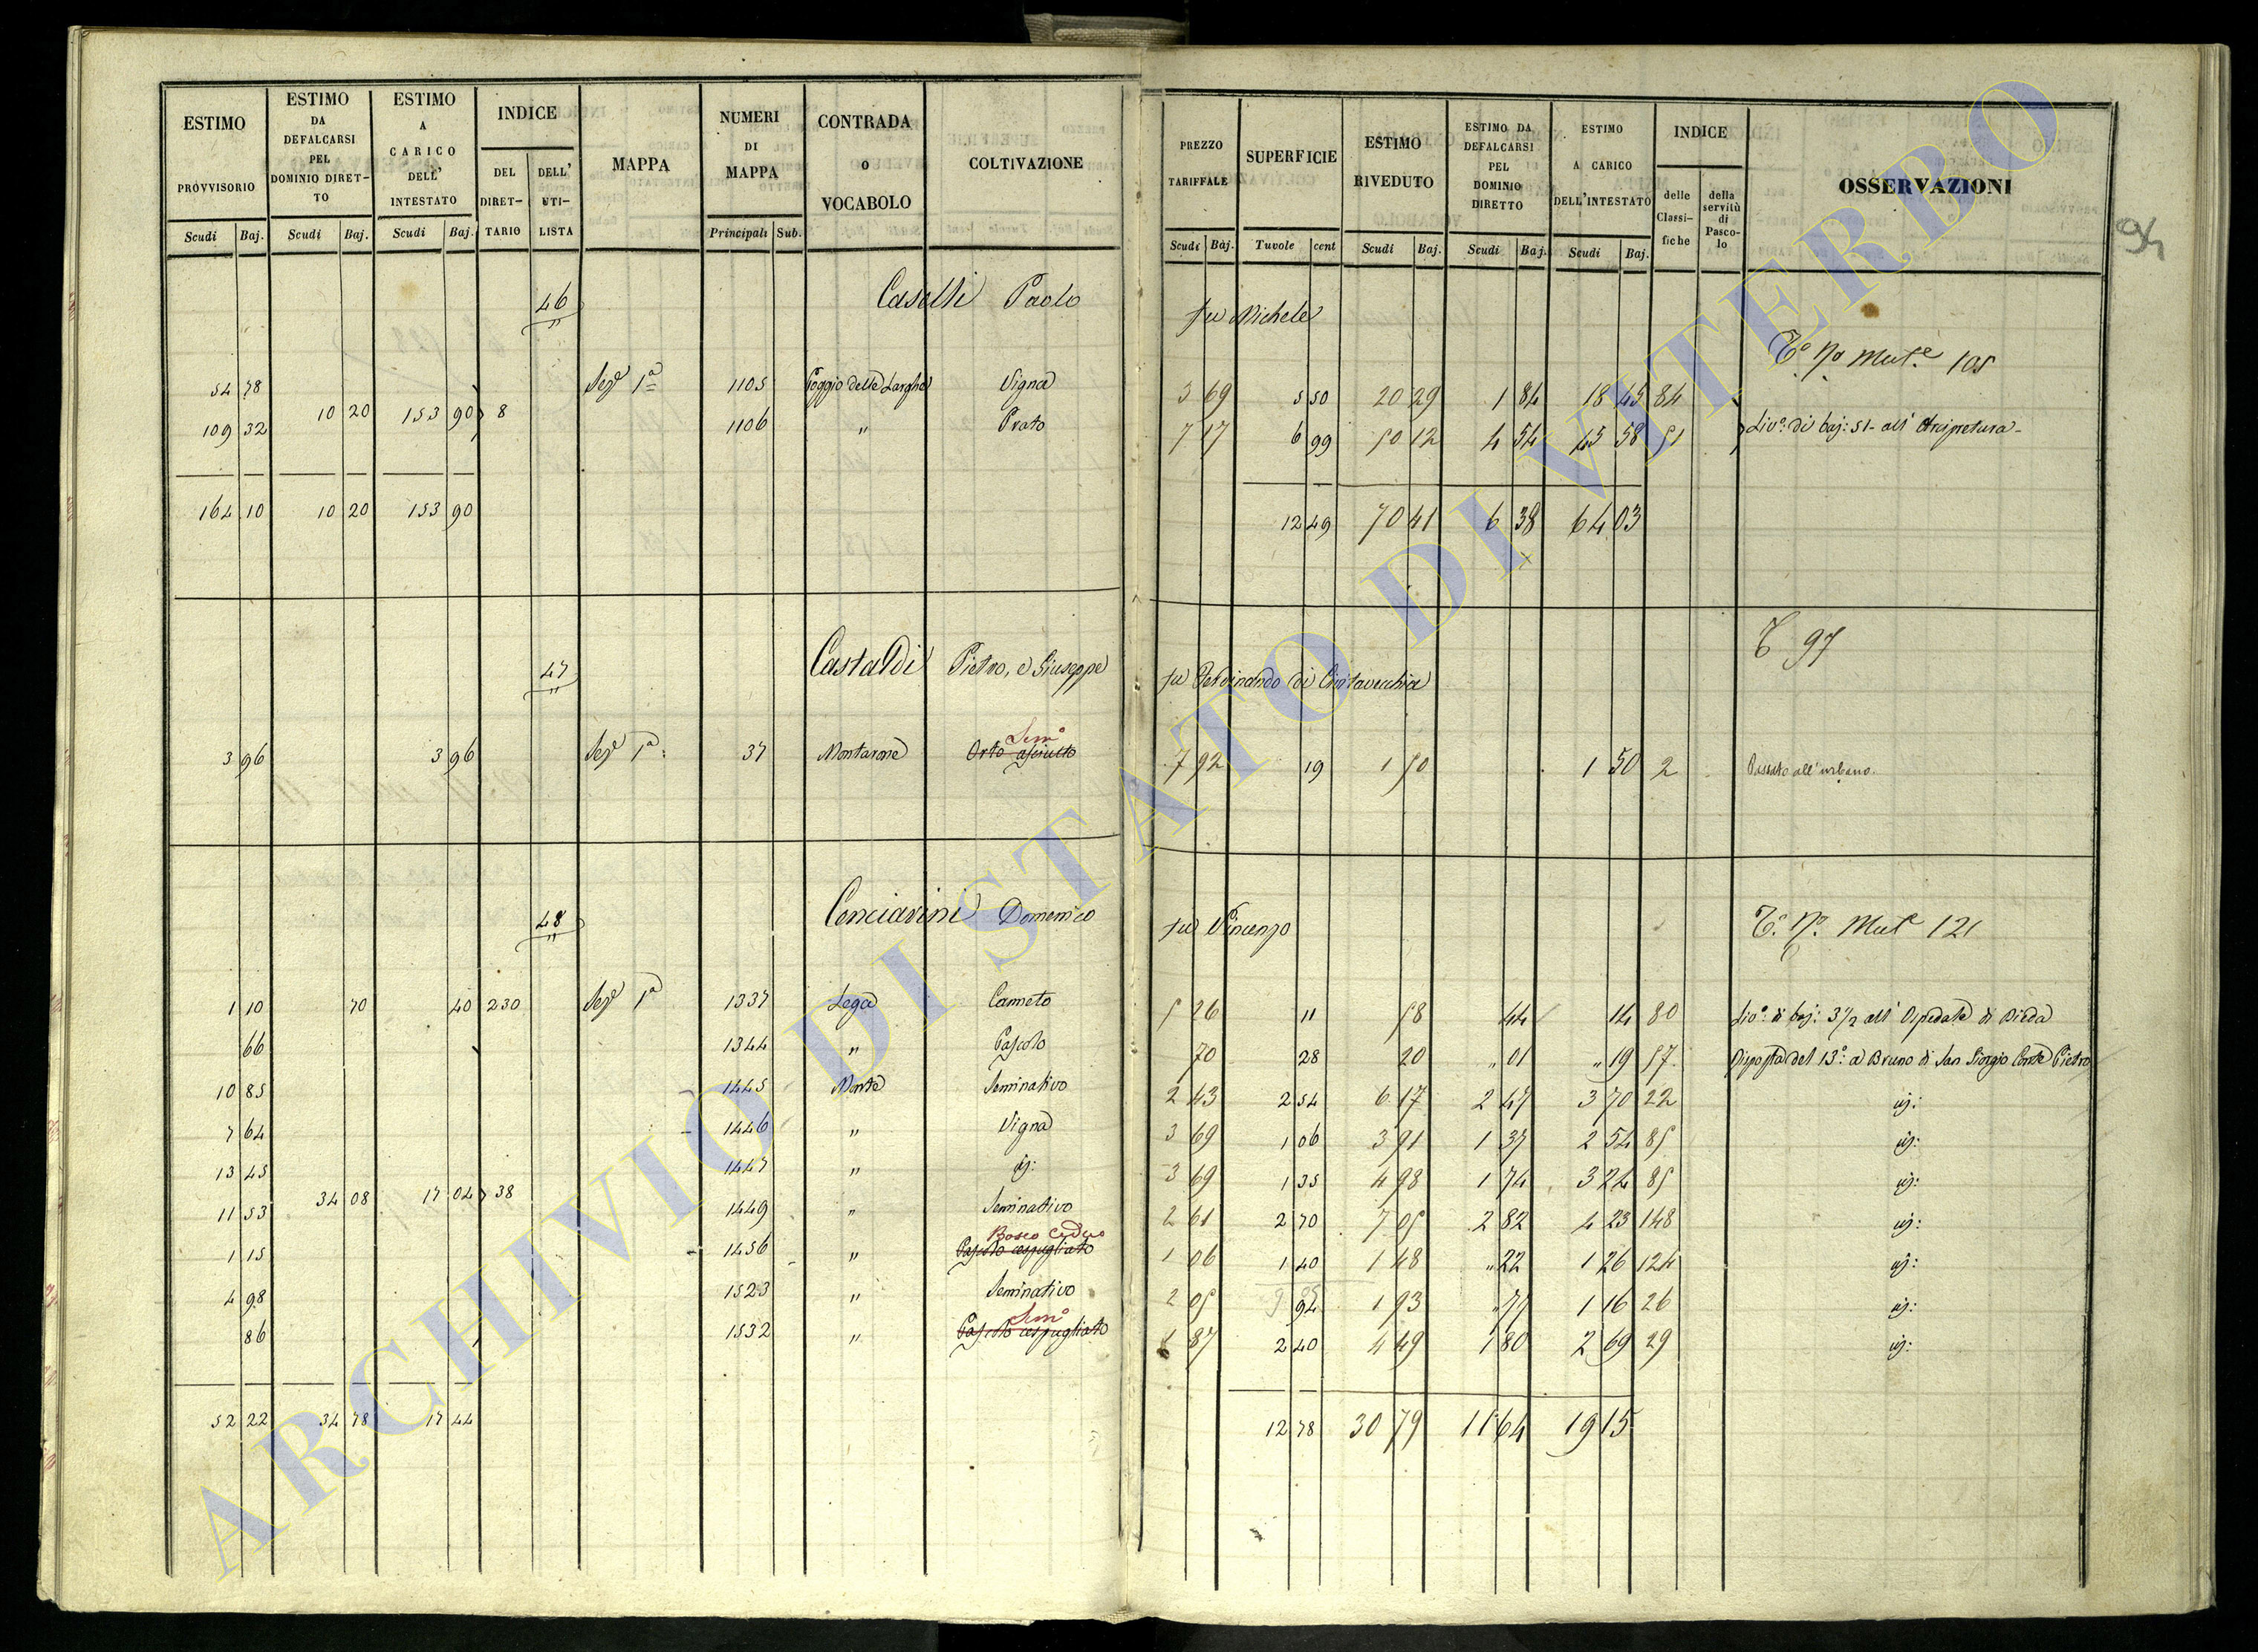 ESTIMO PROVVISORIO Scudi Baj.
ESTIMO DA DEFALCARSI PEL DOMINIO DIRET- TO Scudi Baj.
ESTIMO A CARICO DELL' INTESTATO Scudi Baj.
INDICE DEL DIRET- TARIO DELL' UTI- LISTA
MAPPA
NUMERI DI MAPPA Principali Sub.
CONTRADA o VOCABOLO
COLTIVAZIONE
PREZZO TARIFFALE Scudi Baj.
SUPERFICIE Tavole cent
ESTIMO RIVEDUTO Scudi Baj.
ESTIMO DA DEFALCARSI PEL DOMINIO DIRETTO Scudi Baj.
ESTIMO A CARICO DELL'INTESTATO Scudi Baj.
INDICE delle Classi- fiche della servitù di Pasco- lo
OSSERVAZIONI
94
46 Caselli Paolo fu Michele
Tº Nº Mutᵉ 105
54 78 Sezᵉ 1ª 1105 Poggio delle Larghe Vigna 3 69 5 50 20 29 1 84 18 45 84
10 20 153 90 8
109 32 1106 " Prato 7 17 6 99 50 12 4 54 45 58 51 Livº: di baj: 51- all' Arcipretura-
164 10 10 20 153 90 12 49 70 41 6 38 64 03
T 97
47 Castaldi Pietro, e Giuseppe fu Ferdinando di Civitavecchia
Semº
3 96 3 96 Sezᵉ 1ª: 37 Montarone Orto asciutto 7 92 19 1 50 1 50 2 Passato all'urbano.
48 Cenciarini Domenico fu Vincenzo Tº. Nº. Mutᵉ 121
1 10 70 40 230 Sezᵉ 1ª 1337 Lega Canneto 5 26 11 58 44 14 80 Livº: di baj: 3½ all' Ospedale di Bieda
66 1344 " Pascolo 70 28 20 " 01 " 19 57 Risposta del 13º: a Bruno di San Giorgio Conte Pietro
10 85 1445 Monte Seminativo 2 43 2 54 6 17 2 47 3 70 22 id:
7 64 1446 " Vigna 3 69 1 06 3 91 1 37 2 54 85 id:
13 45 1447 " id: 3 69 1 35 4 98 1 74 3 24 85 id:
34 08 17 04 38
11 53 1449 " Seminativo 2 61 2 70 7 05 2 82 4 23 148 id:
Bosco Ceduo
1 15 1456 " Pascolo cespugliato 1 06 1 40 1 48 " 22 1 26 124 id:
4 98 1523 " Seminativo 2 05 94 1 93 " 77 1 16 26 id:
Semº
86 1532 " Pascolo cespugliato 1 87 2 40 4 49 1 80 2 69 29 id:
52 22 34 78 17 44 12 78 30 79 11 64 19 15
ARCHIVIO DI STATO DI VITERBO